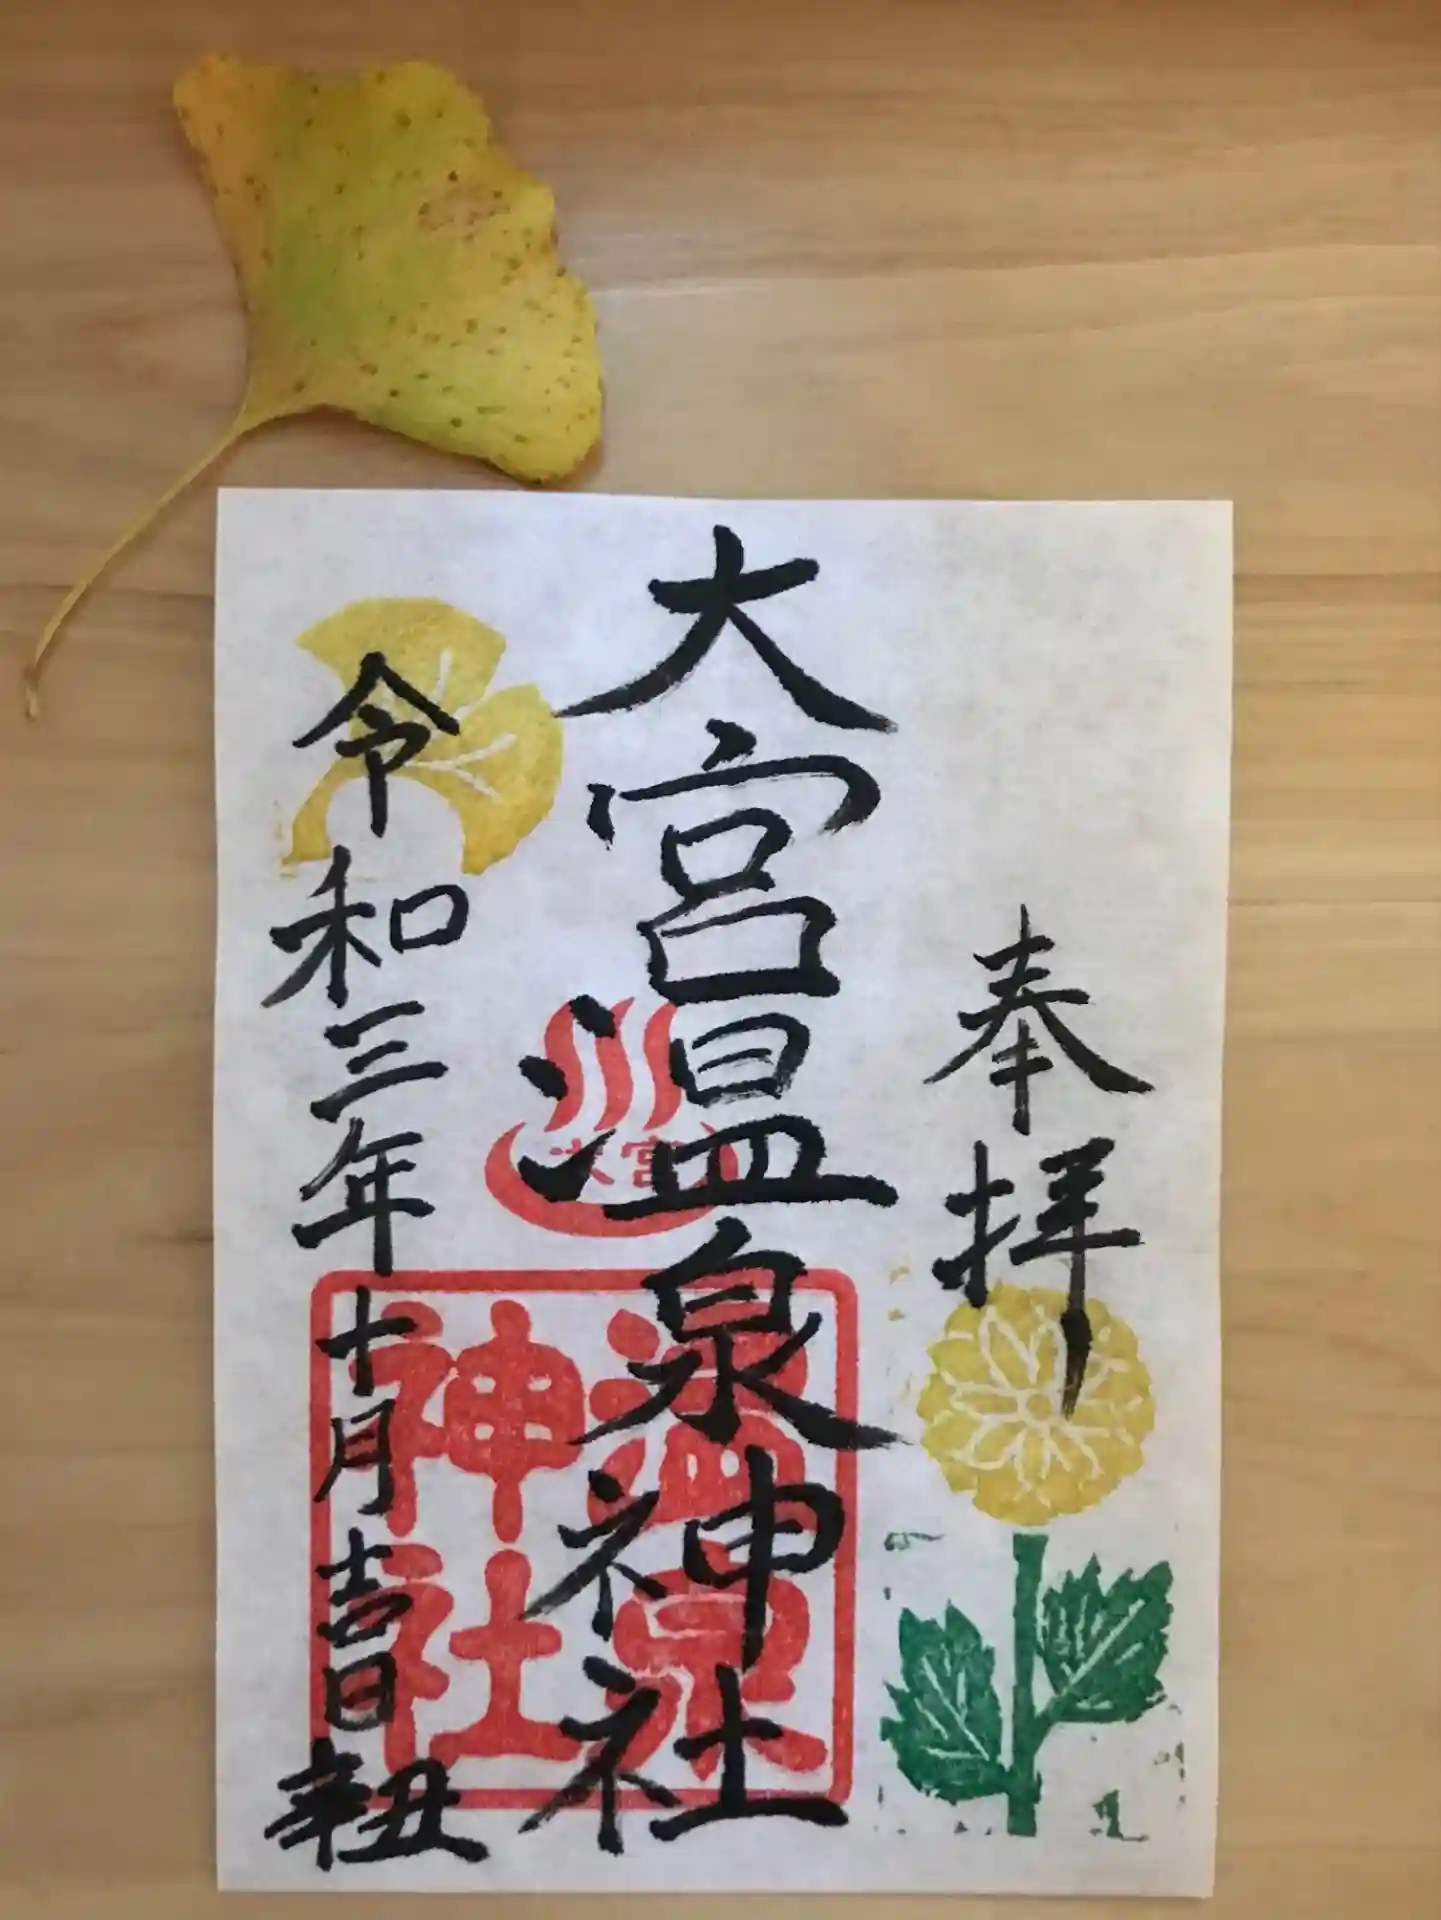 奉拝
大宮温泉神社
大宮
温泉神社
令和三年十月吉日辛丑